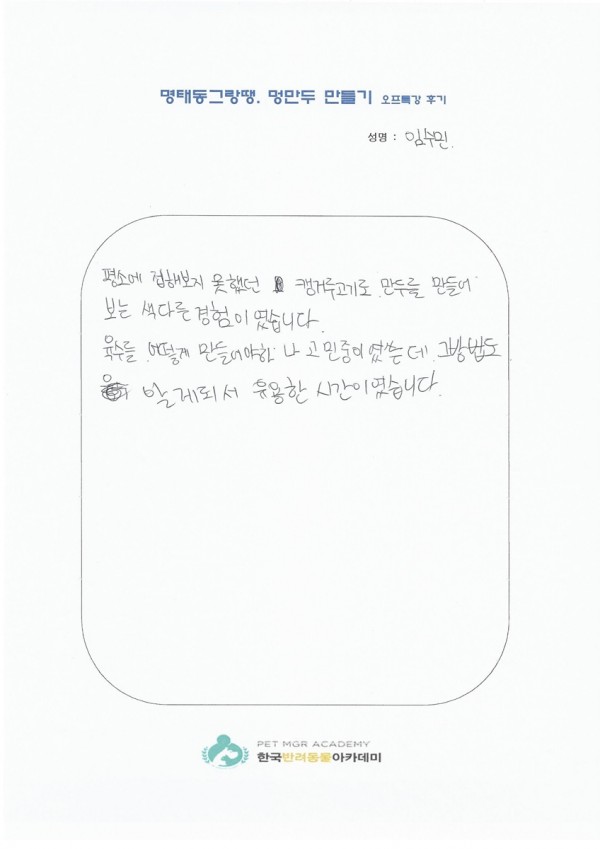 명태동그랑땡. 멍만두 만들기 오프특강 후기
성명 : 임수민.
평소에 접해보지 못했던 캥거루고기로 만두를 만들어
보는 색다른 경험이였습니다.
육수를 어떻게 만들어야하나 고민중이였는데 그방법도
알게되서 유용한 시간이였습니다.
PET MGR ACADEMY
한국반려동물아카데미